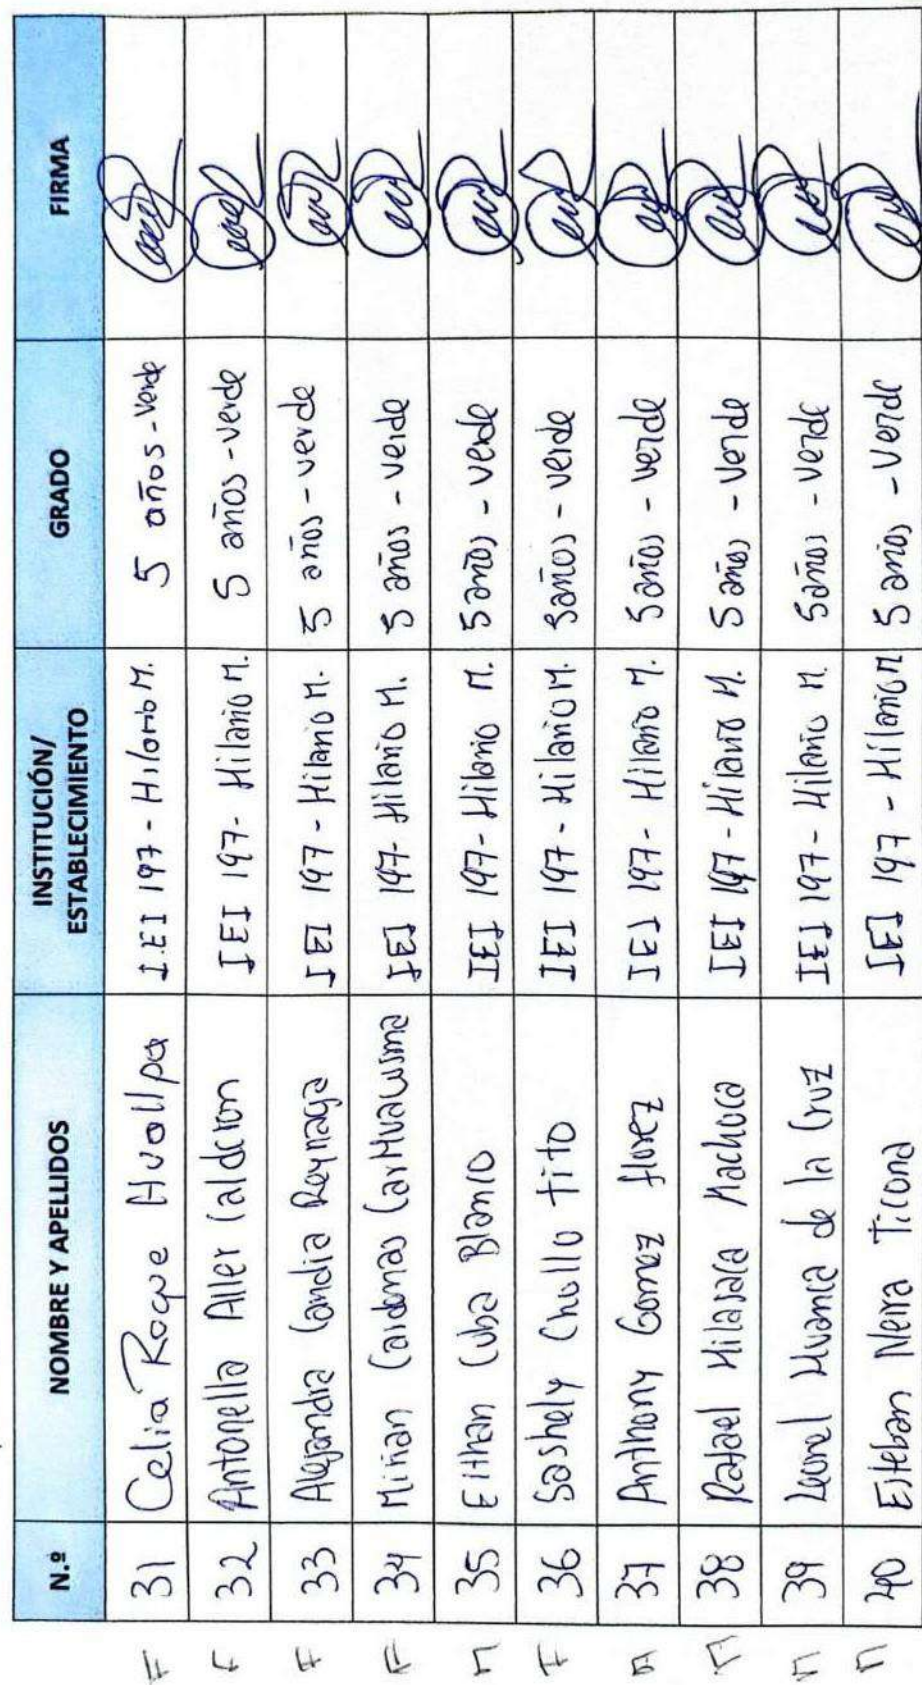 N.º NOMBRE Y APELLIDOS INSTITUCIÓN/ ESTABLECIMIENTO GRADO FIRMA
F 31 Celia Roque Huallpa I.EI 197 - Hilario M. 5 años - Verde
F 32 Antonella Aller Calderon IEI 197 - Hilario M. 5 años - verde
F 33 Alejandra Candia Reynaga IEI 197 - Hilario M. 5 años - verde
F 34 Mirian Cardenas Carhuausma IEI 197 - Hilario M. 5 años - verde
M 35 Eithan Cuba Blanco IEI 197 - Hilario M. 5 años - verde
F 36 Sashely Chullo Tito IEI 197 - Hilario M. 5 años - verde
M 37 Anthony Gomez Florez IEI 197 - Hilario M. 5 años - verde
M 38 Rafael Hilasaca Machuca IEI 197 - Hilario M. 5 años - Verde
M 39 Leonel Huanca de la Cruz IEI 197 - Hilario M. 5 años - verde
M 40 Esteban Neira Ticona IEI 197 - Hilario M 5 años - Verde